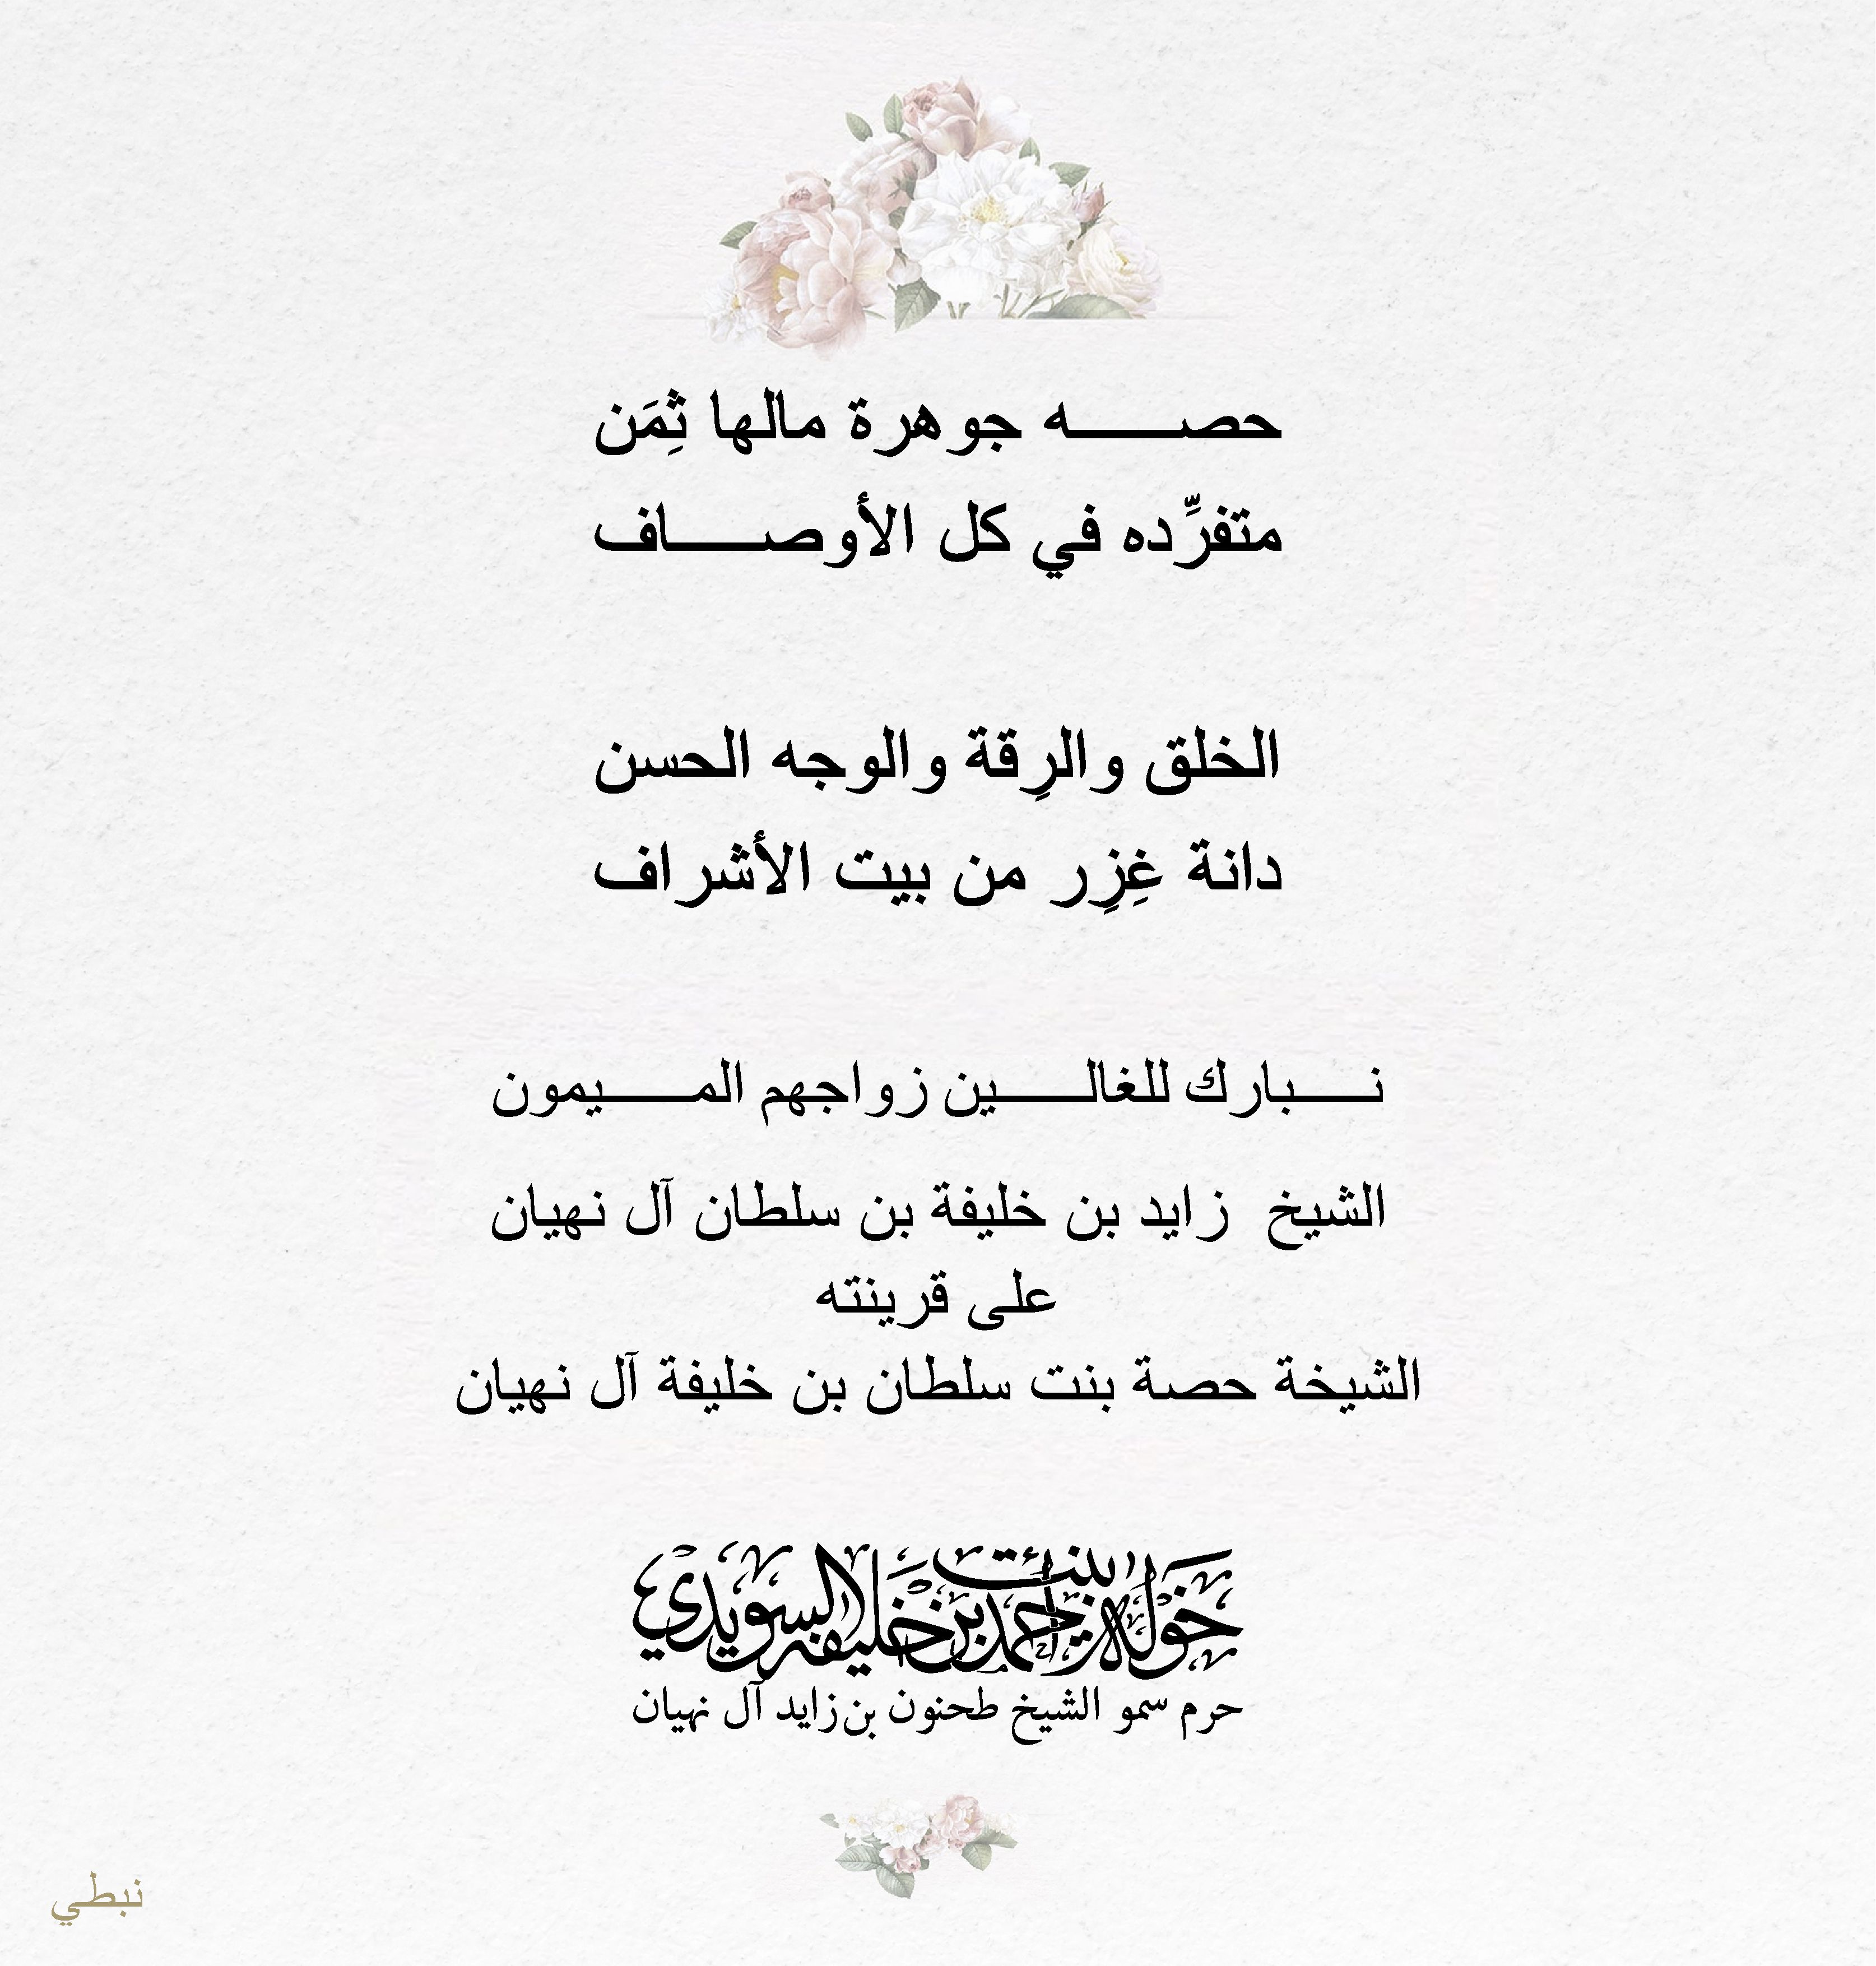 حصـــــه جوهرة مالها ثِمَن
متفرِّده في كل الأوصـــــاف
الخلق والرِقة والوجه الحسن
دانة غِزِر من بيت الأشراف
نـــــبارك للغالـــــين زواجهم الميـــــمون
الشيخ زايد بن خليفة بن سلطان آل نهيان
على قرينته
الشيخة حصة بنت سلطان بن خليفة آل نهيان
خولة بنت أحمد بن خليفة السويدي
حرم سمو الشيخ طحنون بن زايد آل نهيان
نبطي